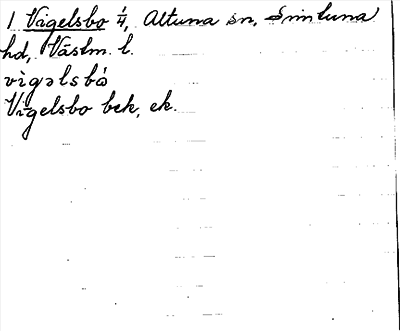 1 Vägelsbo 1/4, Altuna sn, Simtuna
hd, Västm. l.
vìgəlsbó
Vigelsbo bek, ek.